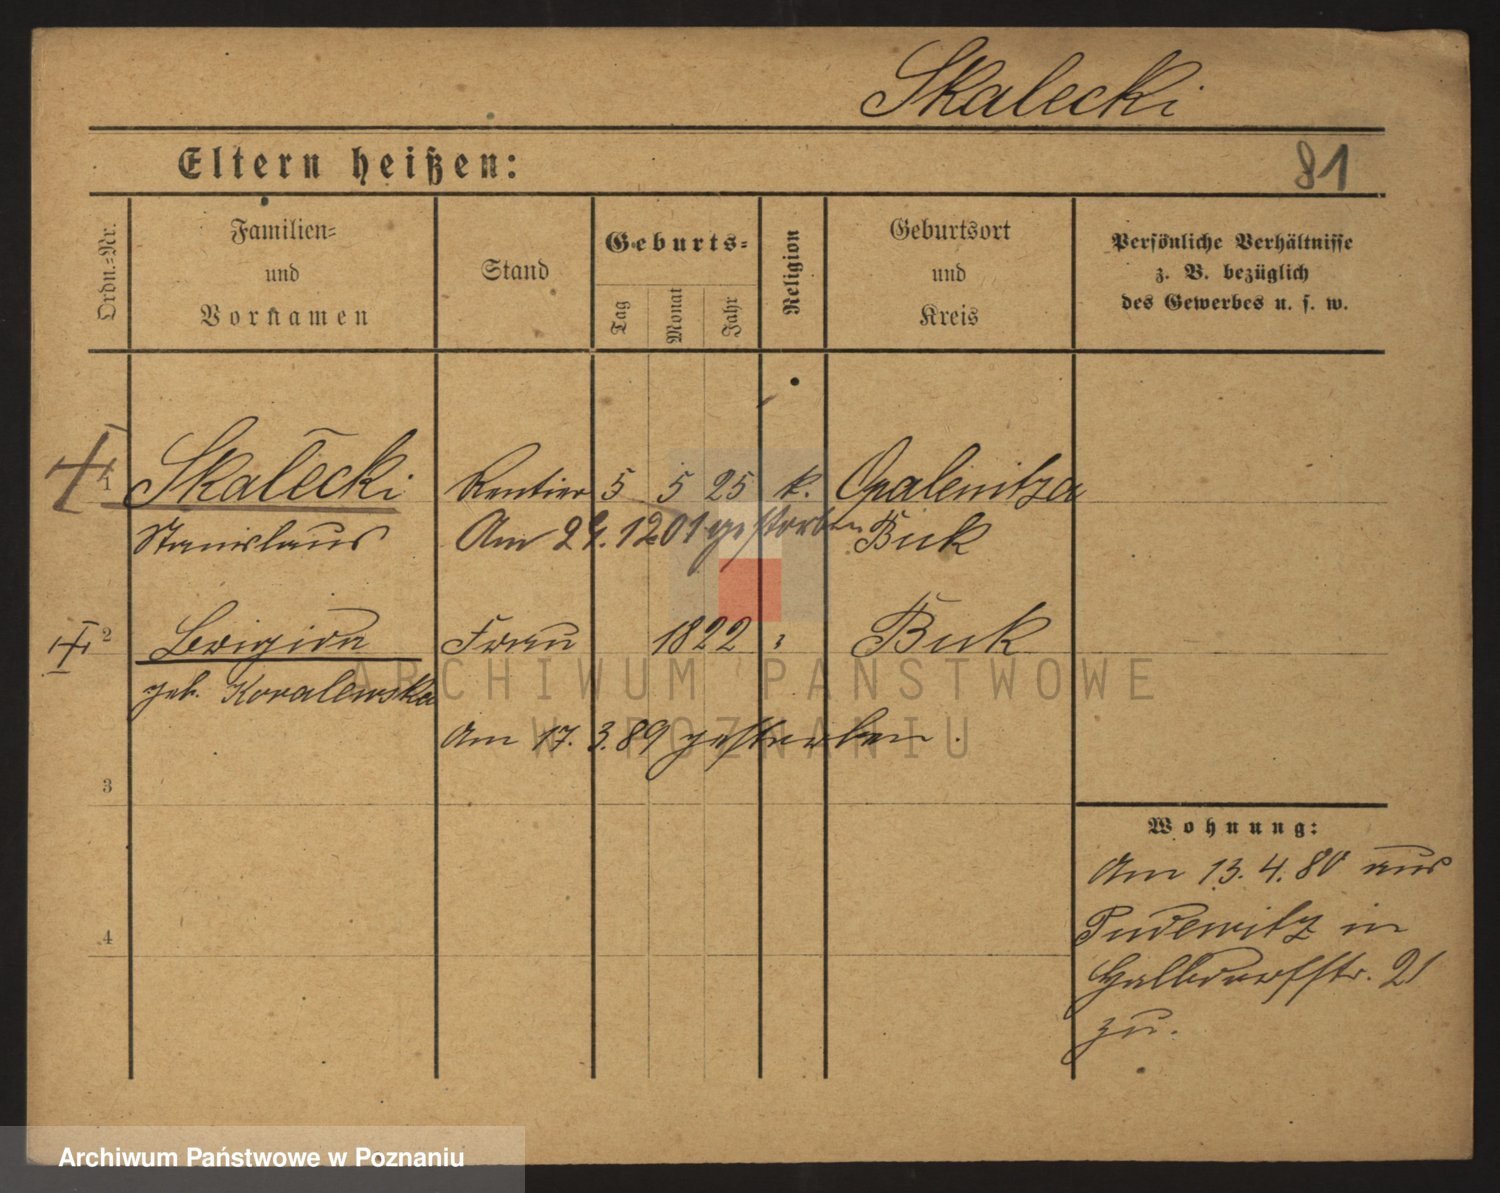 Skalecki
Eltern heißen:
81
Ordn.-Nr.
Familien-
und
Vornamen
Stand
Geburts-
Tag
Monat
Jahr
Religion
Geburtsort
und
Kreis
Persönliche Verhältnisse
z. B. bezüglich
des Gewerbes u. s. w.
1 Skalecki Rentier 5 5 25 k. Opalenitza
Stanislaus Am 12 01 gestorben Buk
2 Brigida Frau 1822 Buk
geb. Kovalewska
Am 17. 3. 89 gestorben.
3
Wohnung:
Am 13. 4. 80 aus
Pudewitz in
Halbdorfstr. 21
zu.
4
ARCHIWUM PAŃSTWOWE
W POZNANIU
Archiwum Państwowe w Poznaniu